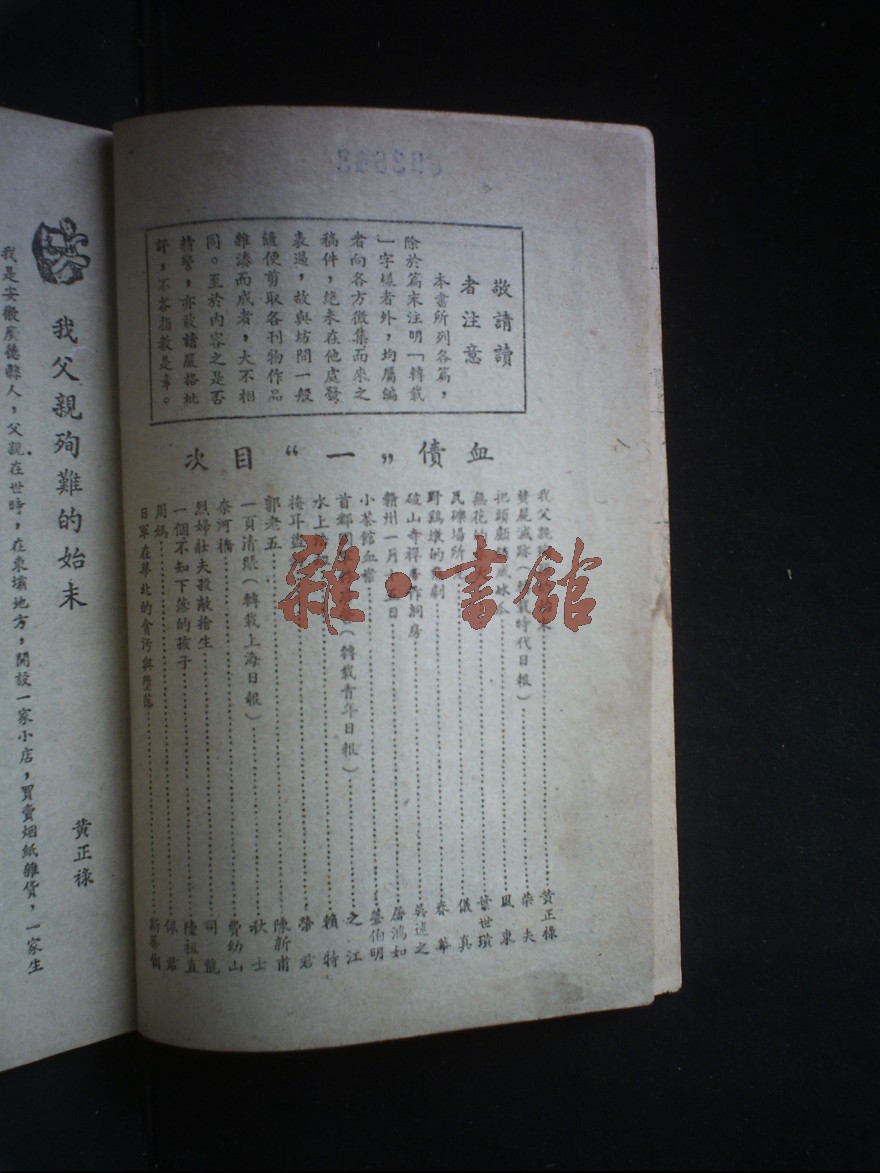 敬請讀
者注意
本書所列各篇，
除於篇末注明「轉載
」字樣者外，均屬編
者向各方徵集而來之
稿件，絶未在他處發
表過，故與坊間一般
隨便剪取各刊物作品
雜湊而成者，大不相
同。至於內容之是否
精警，亦敬請嚴格批
評，不吝指教是幸。
血債„一“目次
我父親 末 黃正祿
焚屍滅跡（轉載時代日報） 榮夫
把頭顱 風東
無花的 葉世璜
瓦礫場所見 儀真
野鷄墩的 劇 春華
破山寺禪 作洞房 吳述之
贛州一月 日 屠鴻如
小茶館血案 伯明
首都 （轉載青年日報） 之江
水上 賴特
掩耳盜 榮君
郭老五 陳新甫
一頁清賬（轉載上海日報） 秋士
奈河橋 費幼山
烈婦壯夫殺敵捨生 司龍
一個不知下落的孩子 陸祖直
周媽 保君
日軍在華北的貪污與墮落
雜·書館
我父親殉難的始末
黃正祿
我是安徽廣德縣人，父親在世時，在東壩地方，開設一家小店，買賣烟紙雜貨，一家生